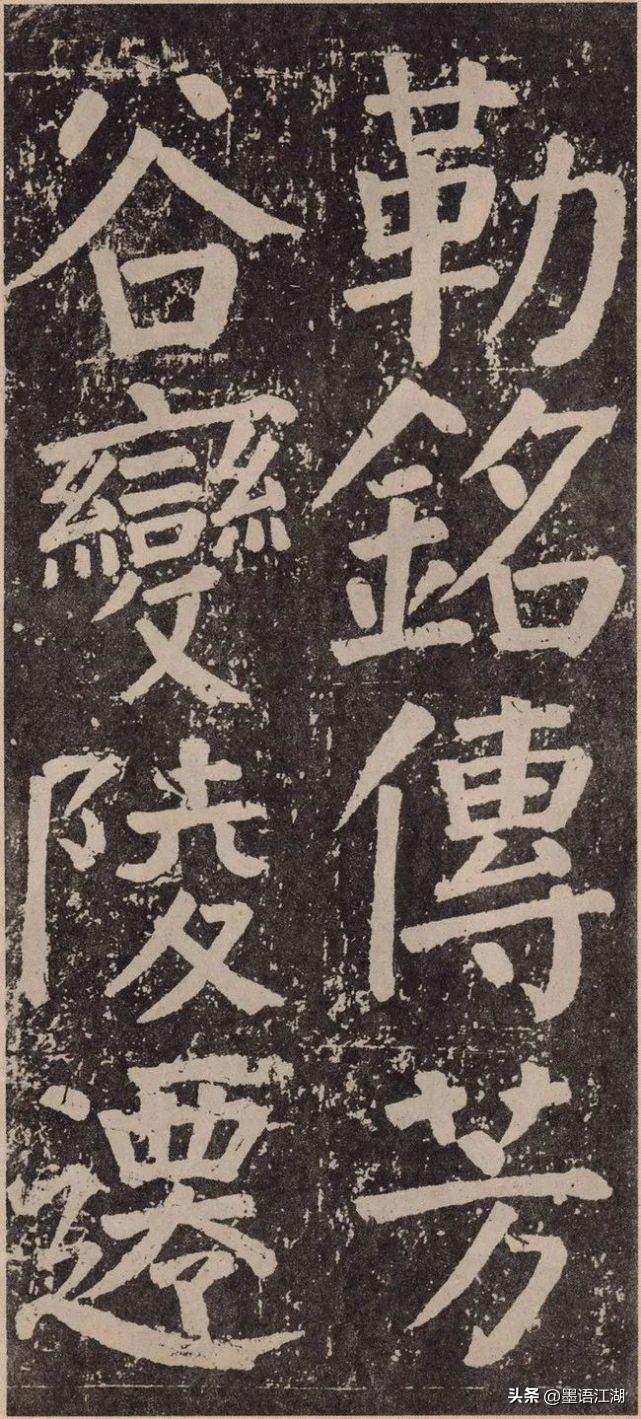 勒銘傳芳
谷變陵遷
头条 @墨语江湖